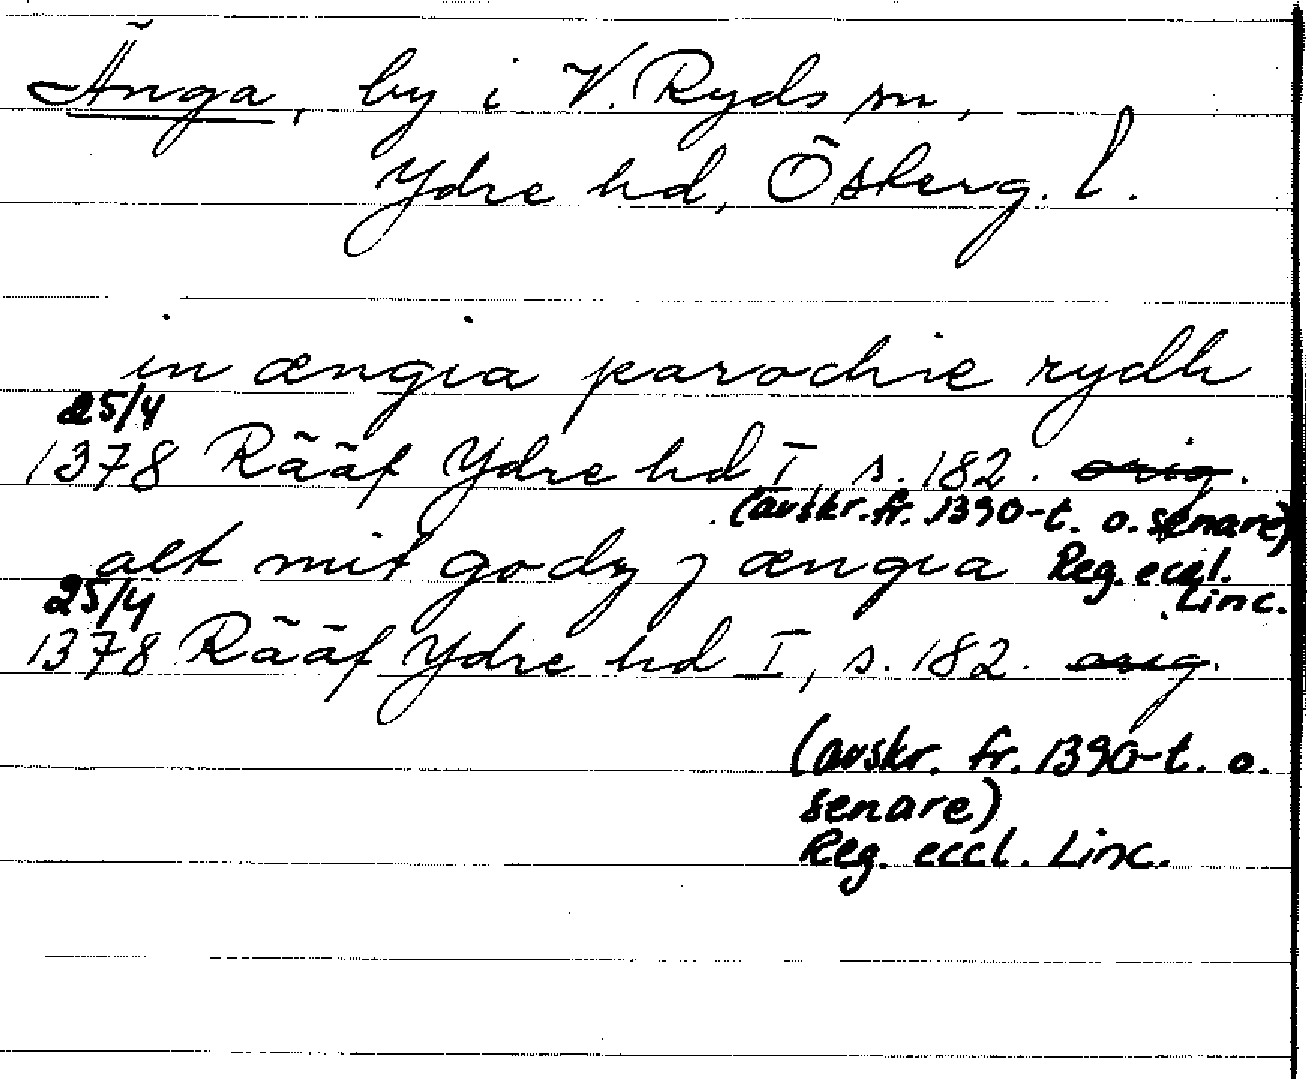 Änga, by i V. Ryds sn,
Ydre hd, Österg. l.
in ængia parochie rydh
25/4
1378 Rääf Ydre hd I, s. 182. orig.
(avskr. fr. 1390-t. o. senare)
alt mit godz j ængia Reg. eccl.
Linc.
25/4
1378 Rääf Ydre hd I, s. 182. orig.
(avskr. fr. 1390-t. o.
senare)
Reg. eccl. Linc.